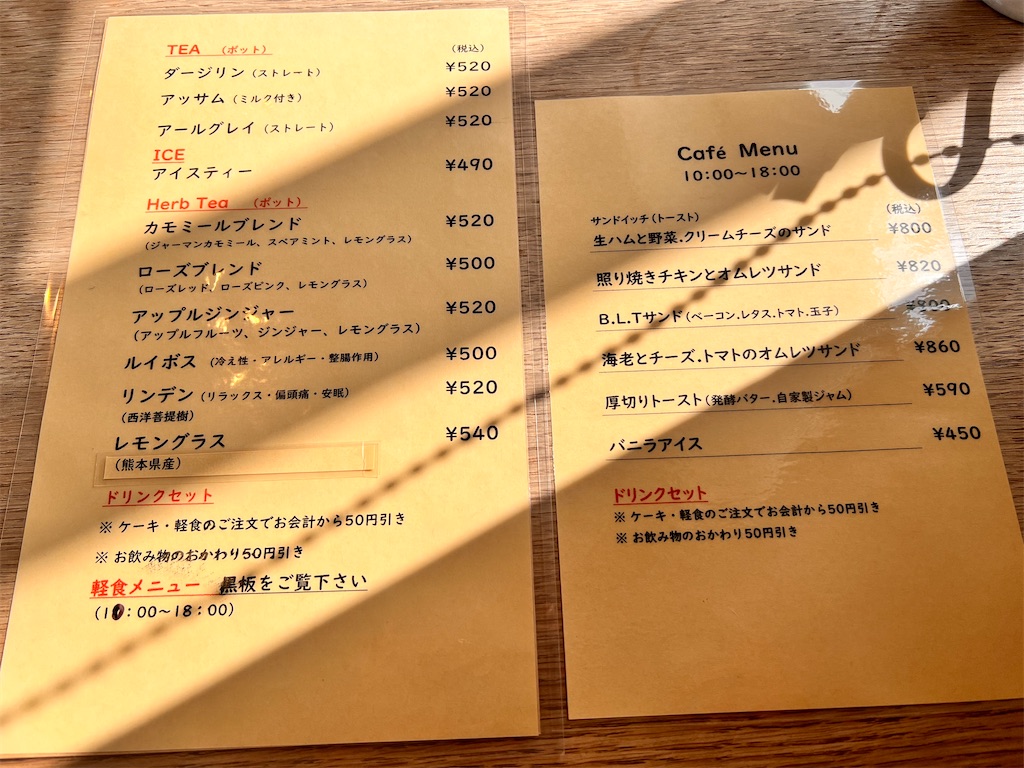 TEA （ポット）
（税込）
ダージリン（ストレート） ¥520
アッサム（ミルク付き） ¥520
アールグレイ（ストレート） ¥520
ICE
アイスティー ¥490
Herb Tea （ポット）
カモミールブレンド ¥520
（ジャーマンカモミール、スペアミント、レモングラス）
ローズブレンド ¥500
（ローズレッド、ローズピンク、レモングラス）
アップルジンジャー ¥520
（アップルフルーツ、ジンジャー、レモングラス）
ルイボス（冷え性・アレルギー・整腸作用） ¥500
リンデン（リラックス・偏頭痛・安眠） ¥520
（西洋菩提樹）
レモングラス ¥540
（熊本県産）
ドリンクセット
※ ケーキ・軽食のご注文でお会計から50円引き
※ お飲み物のおかわり50円引き
軽食メニュー 黒板をご覧下さい
（10：00〜18：00）
Café Menu
10：00〜18：00
（税込）
サンドイッチ（トースト）
生ハムと野菜.クリームチーズのサンド ¥800
照り焼きチキンとオムレツサンド ¥820
B.L.Tサンド（ベーコン.レタス.トマト.玉子）
海老とチーズ.トマトのオムレツサンド ¥860
厚切りトースト（発酵バター.自家製ジャム） ¥590
バニラアイス ¥450
ドリンクセット
※ ケーキ・軽食のご注文でお会計から50円引き
※ お飲み物のおかわり50円引き